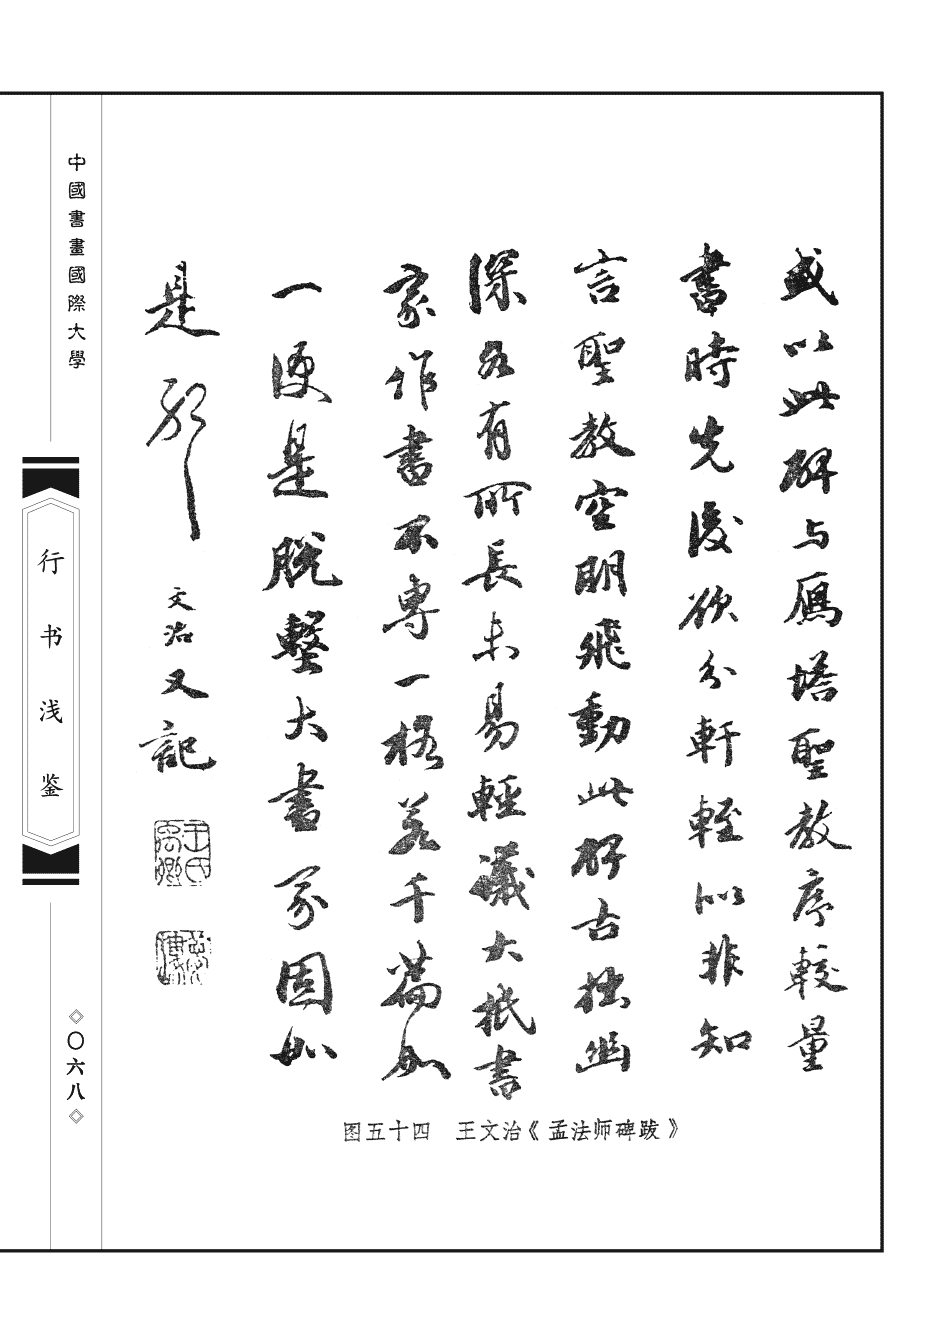 或以此碑与鴈塔聖教序較量
書時先後欲分軒輊似非知
言聖教空明飛動此碑古拙幽
深各有所長未易輕議大抵書
家作書不專一格若千篇如
一便是脫墼大書家固如
是耶
文治又記
王氏禹卿
夢樓
图五十四 王文治《孟法师碑跋》
中國書畫國際大學
行书浅鉴
〇六八